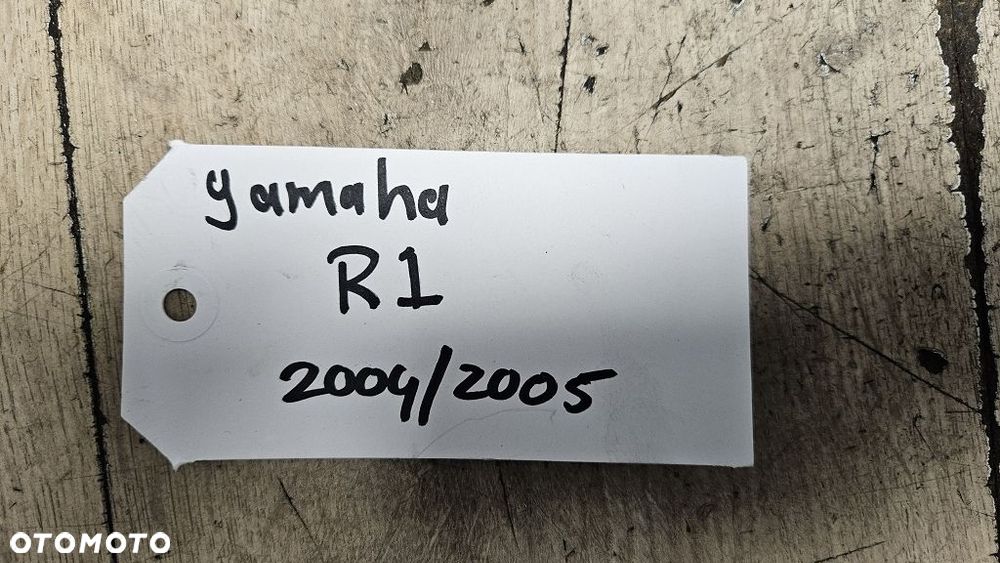 yamaha
R1
2004/2005
OTOMOTO